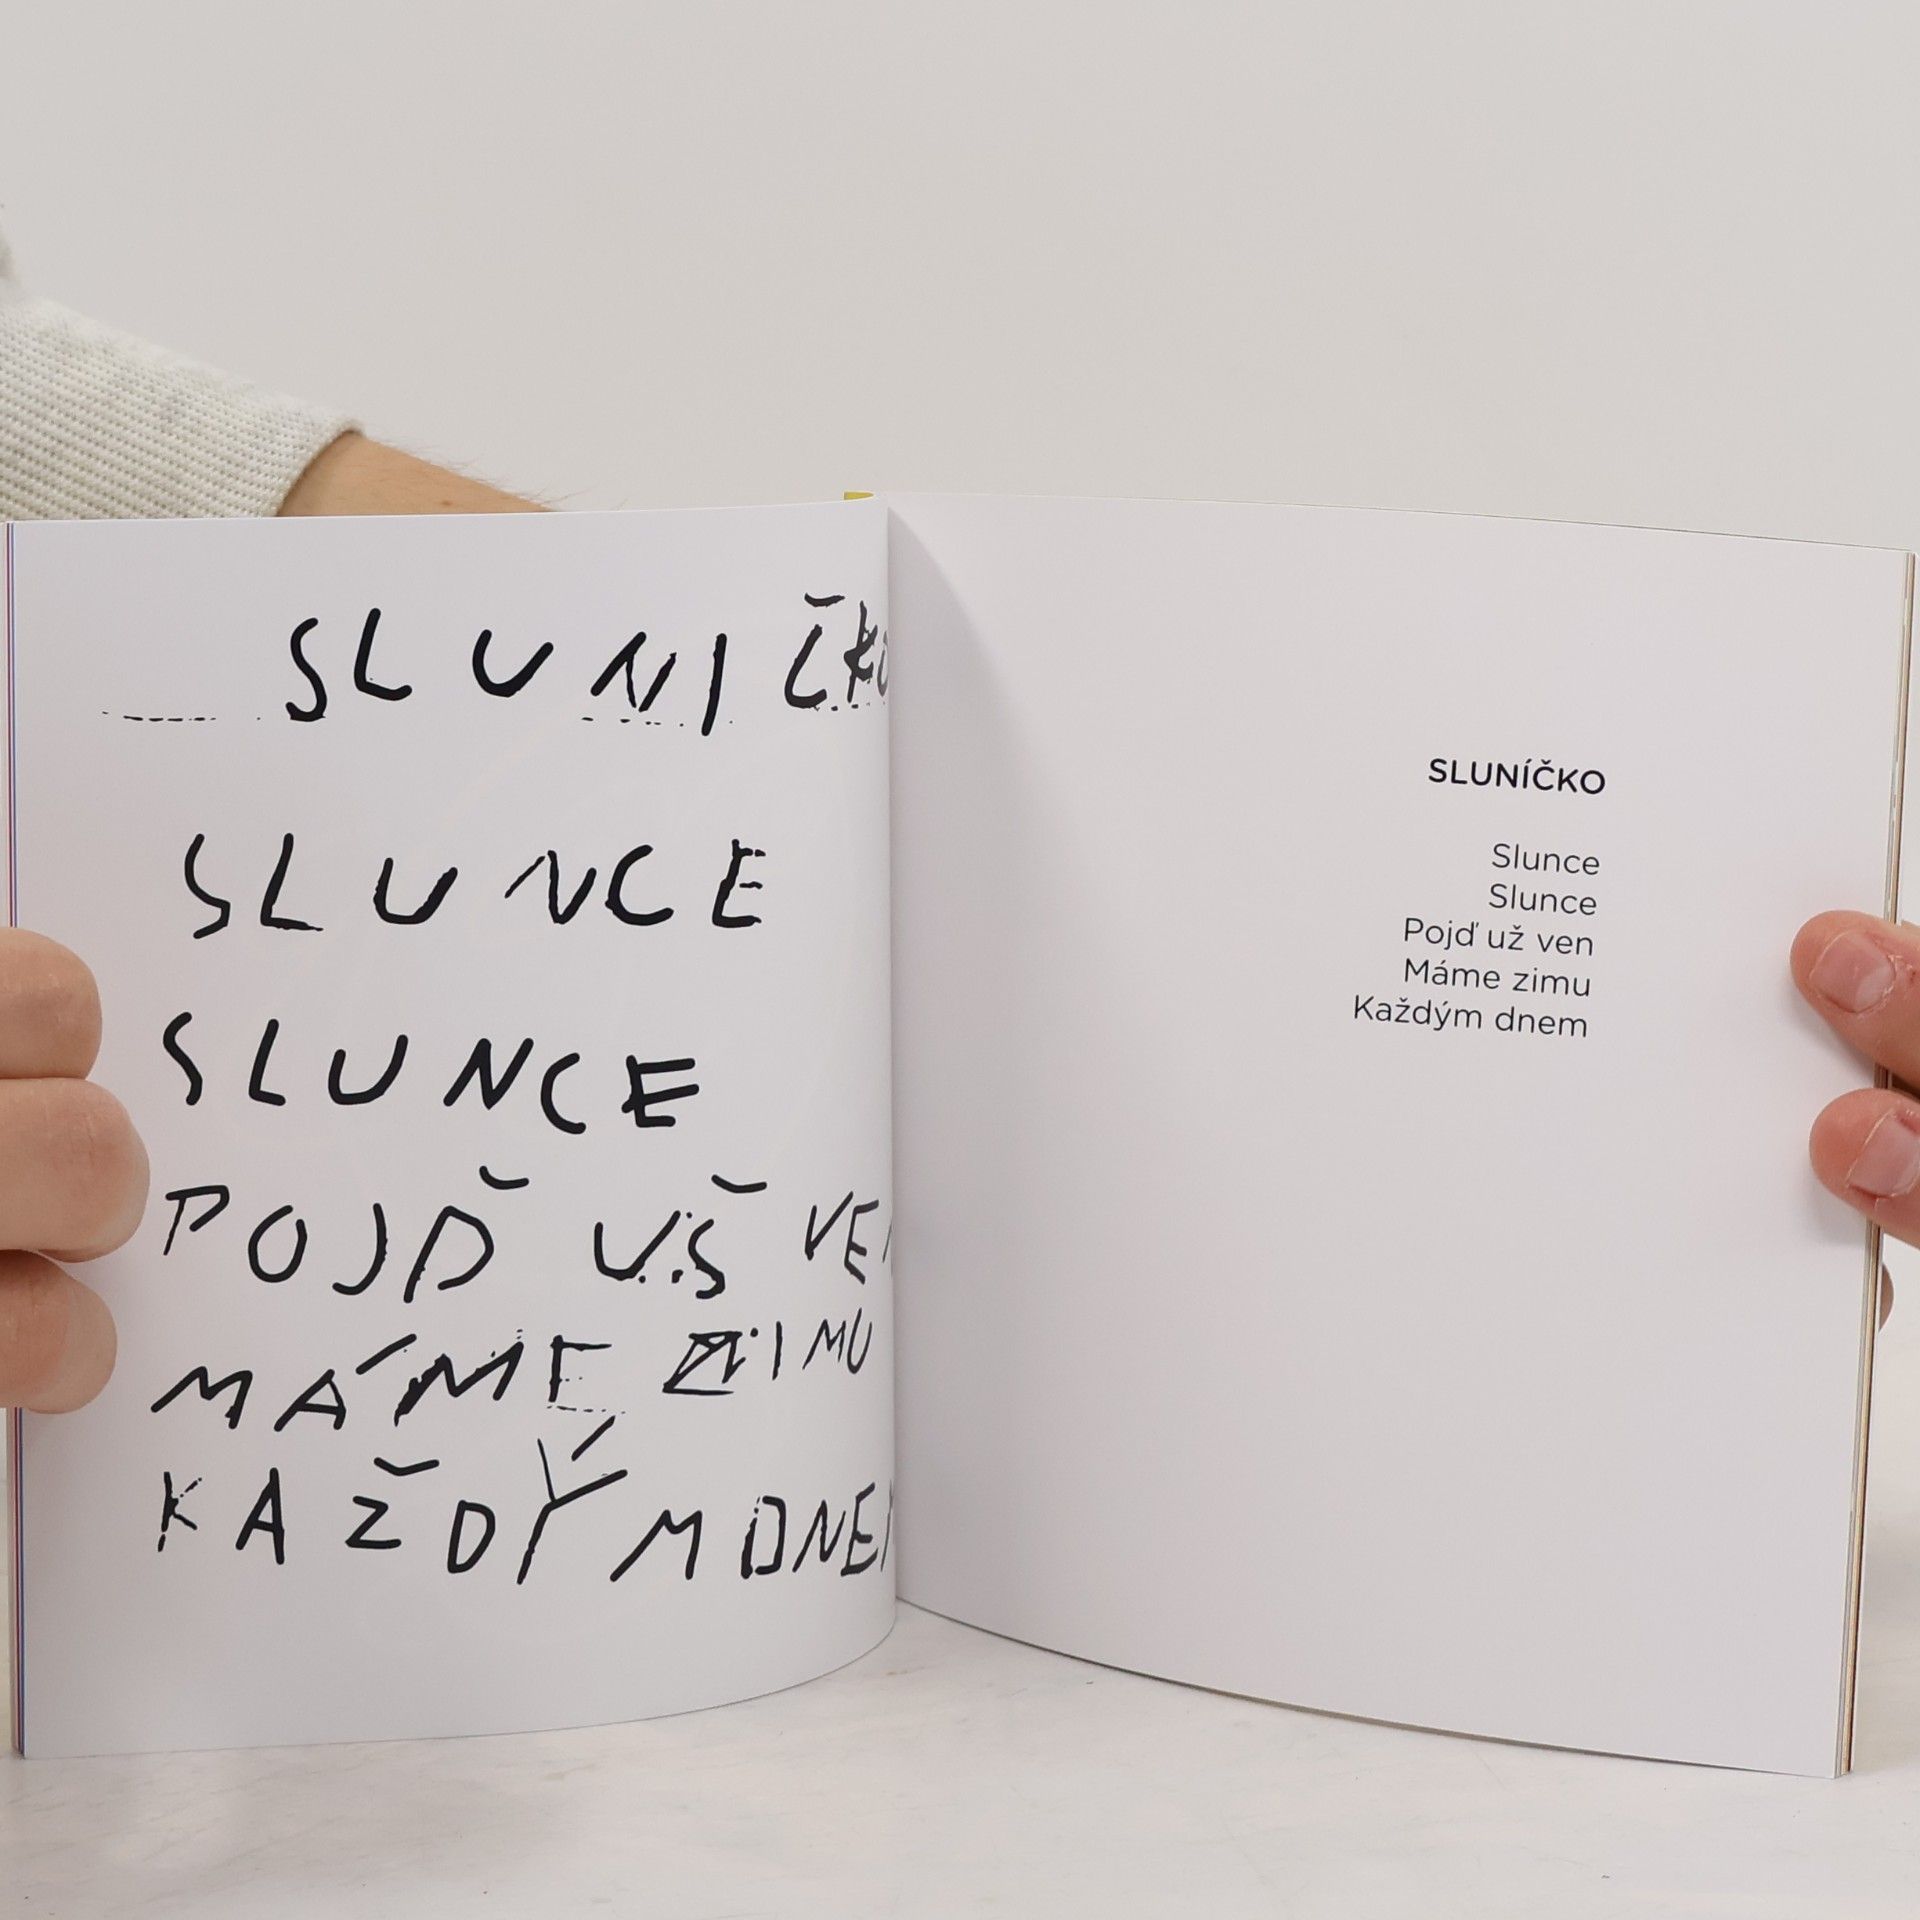 SLUNIČKO
SLUNCE
SLUNCE
POJĎ UŠ VEN
MÁME ZIMU
KAŽDÝM DNEM
SLUNÍČKO
Slunce
Slunce
Pojď už ven
Máme zimu
Každým dnem